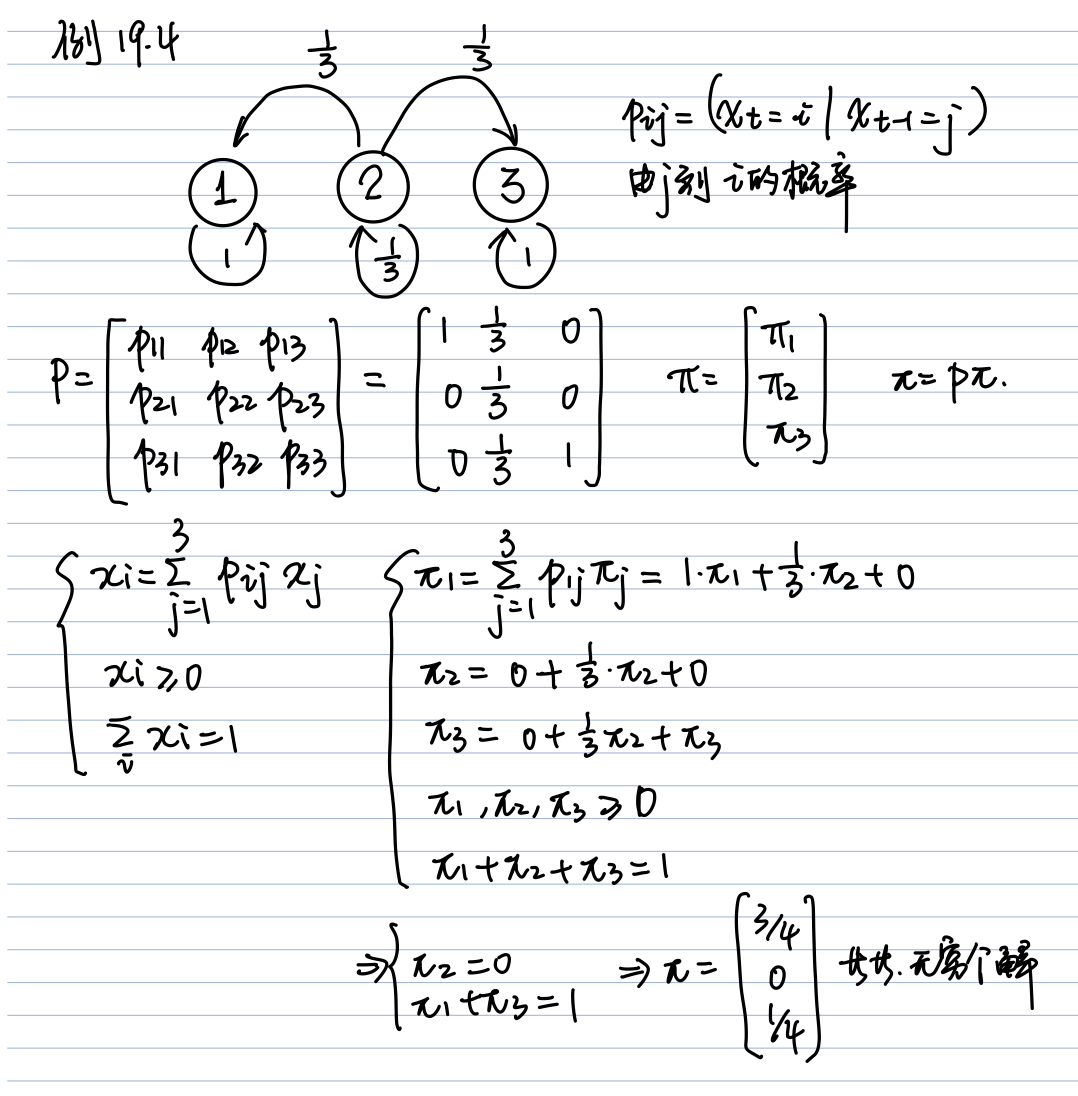 例 19.4
1/3 1/3
p_{ij} = (x_t = i | x_{t-1} = j)
1 2 3
由j到 i的概率
1 1/3 1
P = [p_{11} p_{12} p_{13}; p_{21} p_{22} p_{23}; p_{31} p_{32} p_{33}] = [1 1/3 0; 0 1/3 0; 0 1/3 1] π = [π_1; π_2; π_3] π = pπ.
{ x_i = ∑_{j=1}^{3} p_{ij} x_j
x_i ≥ 0
∑_i x_i = 1
{ π_1 = ∑_{j=1}^{3} p_{1j} π_j = 1·π_1 + 1/3·π_2 + 0
π_2 = 0 + 1/3·π_2 + 0
π_3 = 0 + 1/3 π_2 + π_3
π_1, π_2, π_3 ≥ 0
π_1 + π_2 + π_3 = 1
⇒ { π_2 = 0
π_1 + π_3 = 1
⇒ π = [3/4; 0; 1/4] 无穷个解